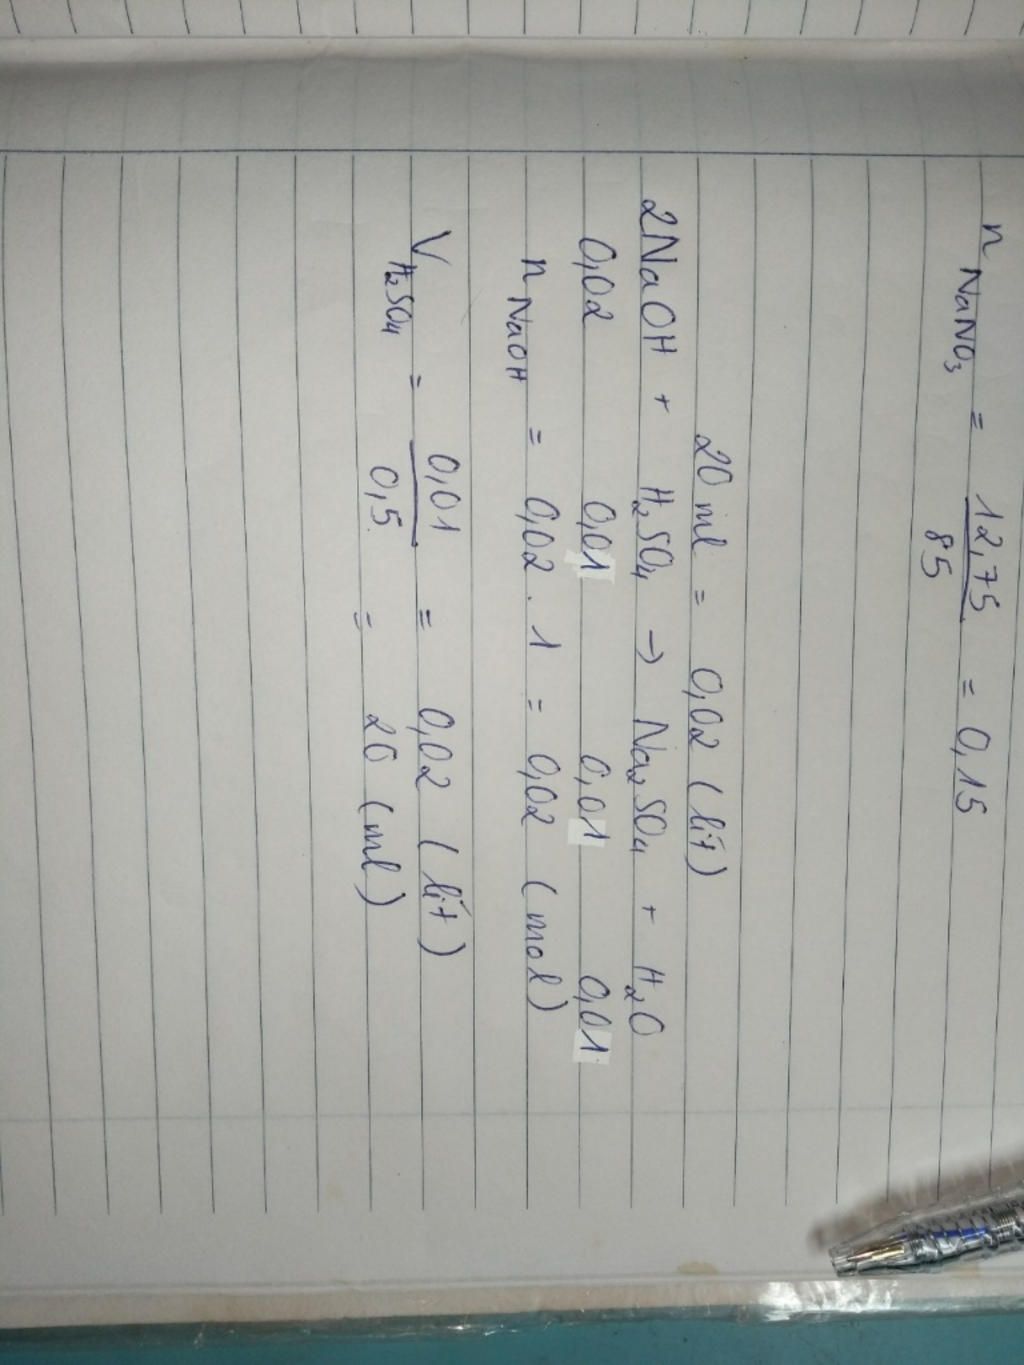 n NaNO₃ = 12,75 / 85 = 0,15
20 ml = 0,02 (lít)
2NaOH + H₂SO₄ → Na₂SO₄ + H₂O
0,02 0,01 0,01 0,01
n NaOH = 0,02 . 1 = 0,02 (mol)
V H₂SO₄ = 0,01 / 0,5 = 0,02 (lít)
= 20 (ml)